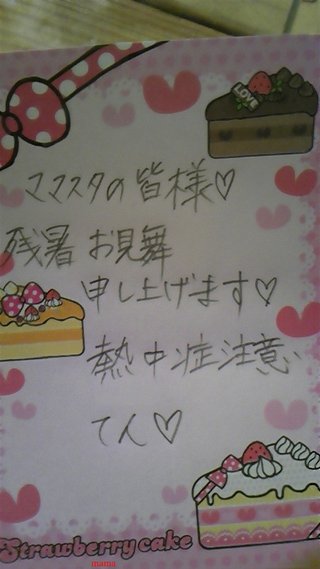 LOVE
ママスタの皆様♡
残暑 お見舞
申し上げます♡
熱中症注意
てん♡
Strawberry cake
mama